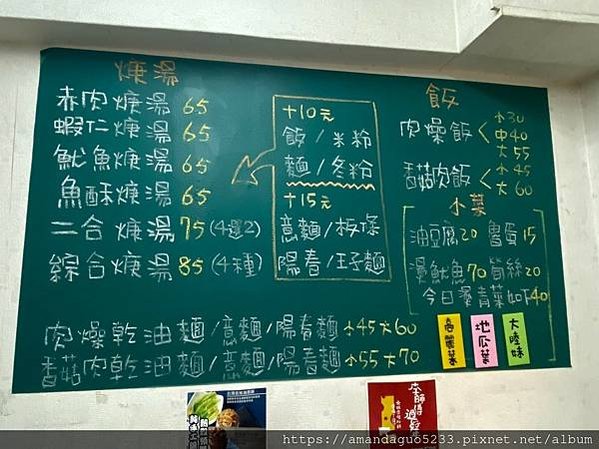 焿湯
赤肉焿湯 65
蝦仁焿湯 65
魷魚焿湯 65
魚酥焿湯 65
二合焿湯 75 (4選2)
綜合焿湯 85 (4種)
+10元
飯/米粉
麵/冬粉
+15元
意麵/板條
陽春/王子麵
飯
肉燥飯 小30
中40
大55
香菇肉飯 小45
大60
小菜
油豆腐20 魯蛋15
燙魷魚70 筍絲20
今日燙青菜如下40
地瓜葉
大陸妹
肉燥乾油麵/意麵/陽春麵 小45大60
香菇肉乾油麵/意麵/陽春麵 小55大70
https://amandaguo5233.pixnet.net/album